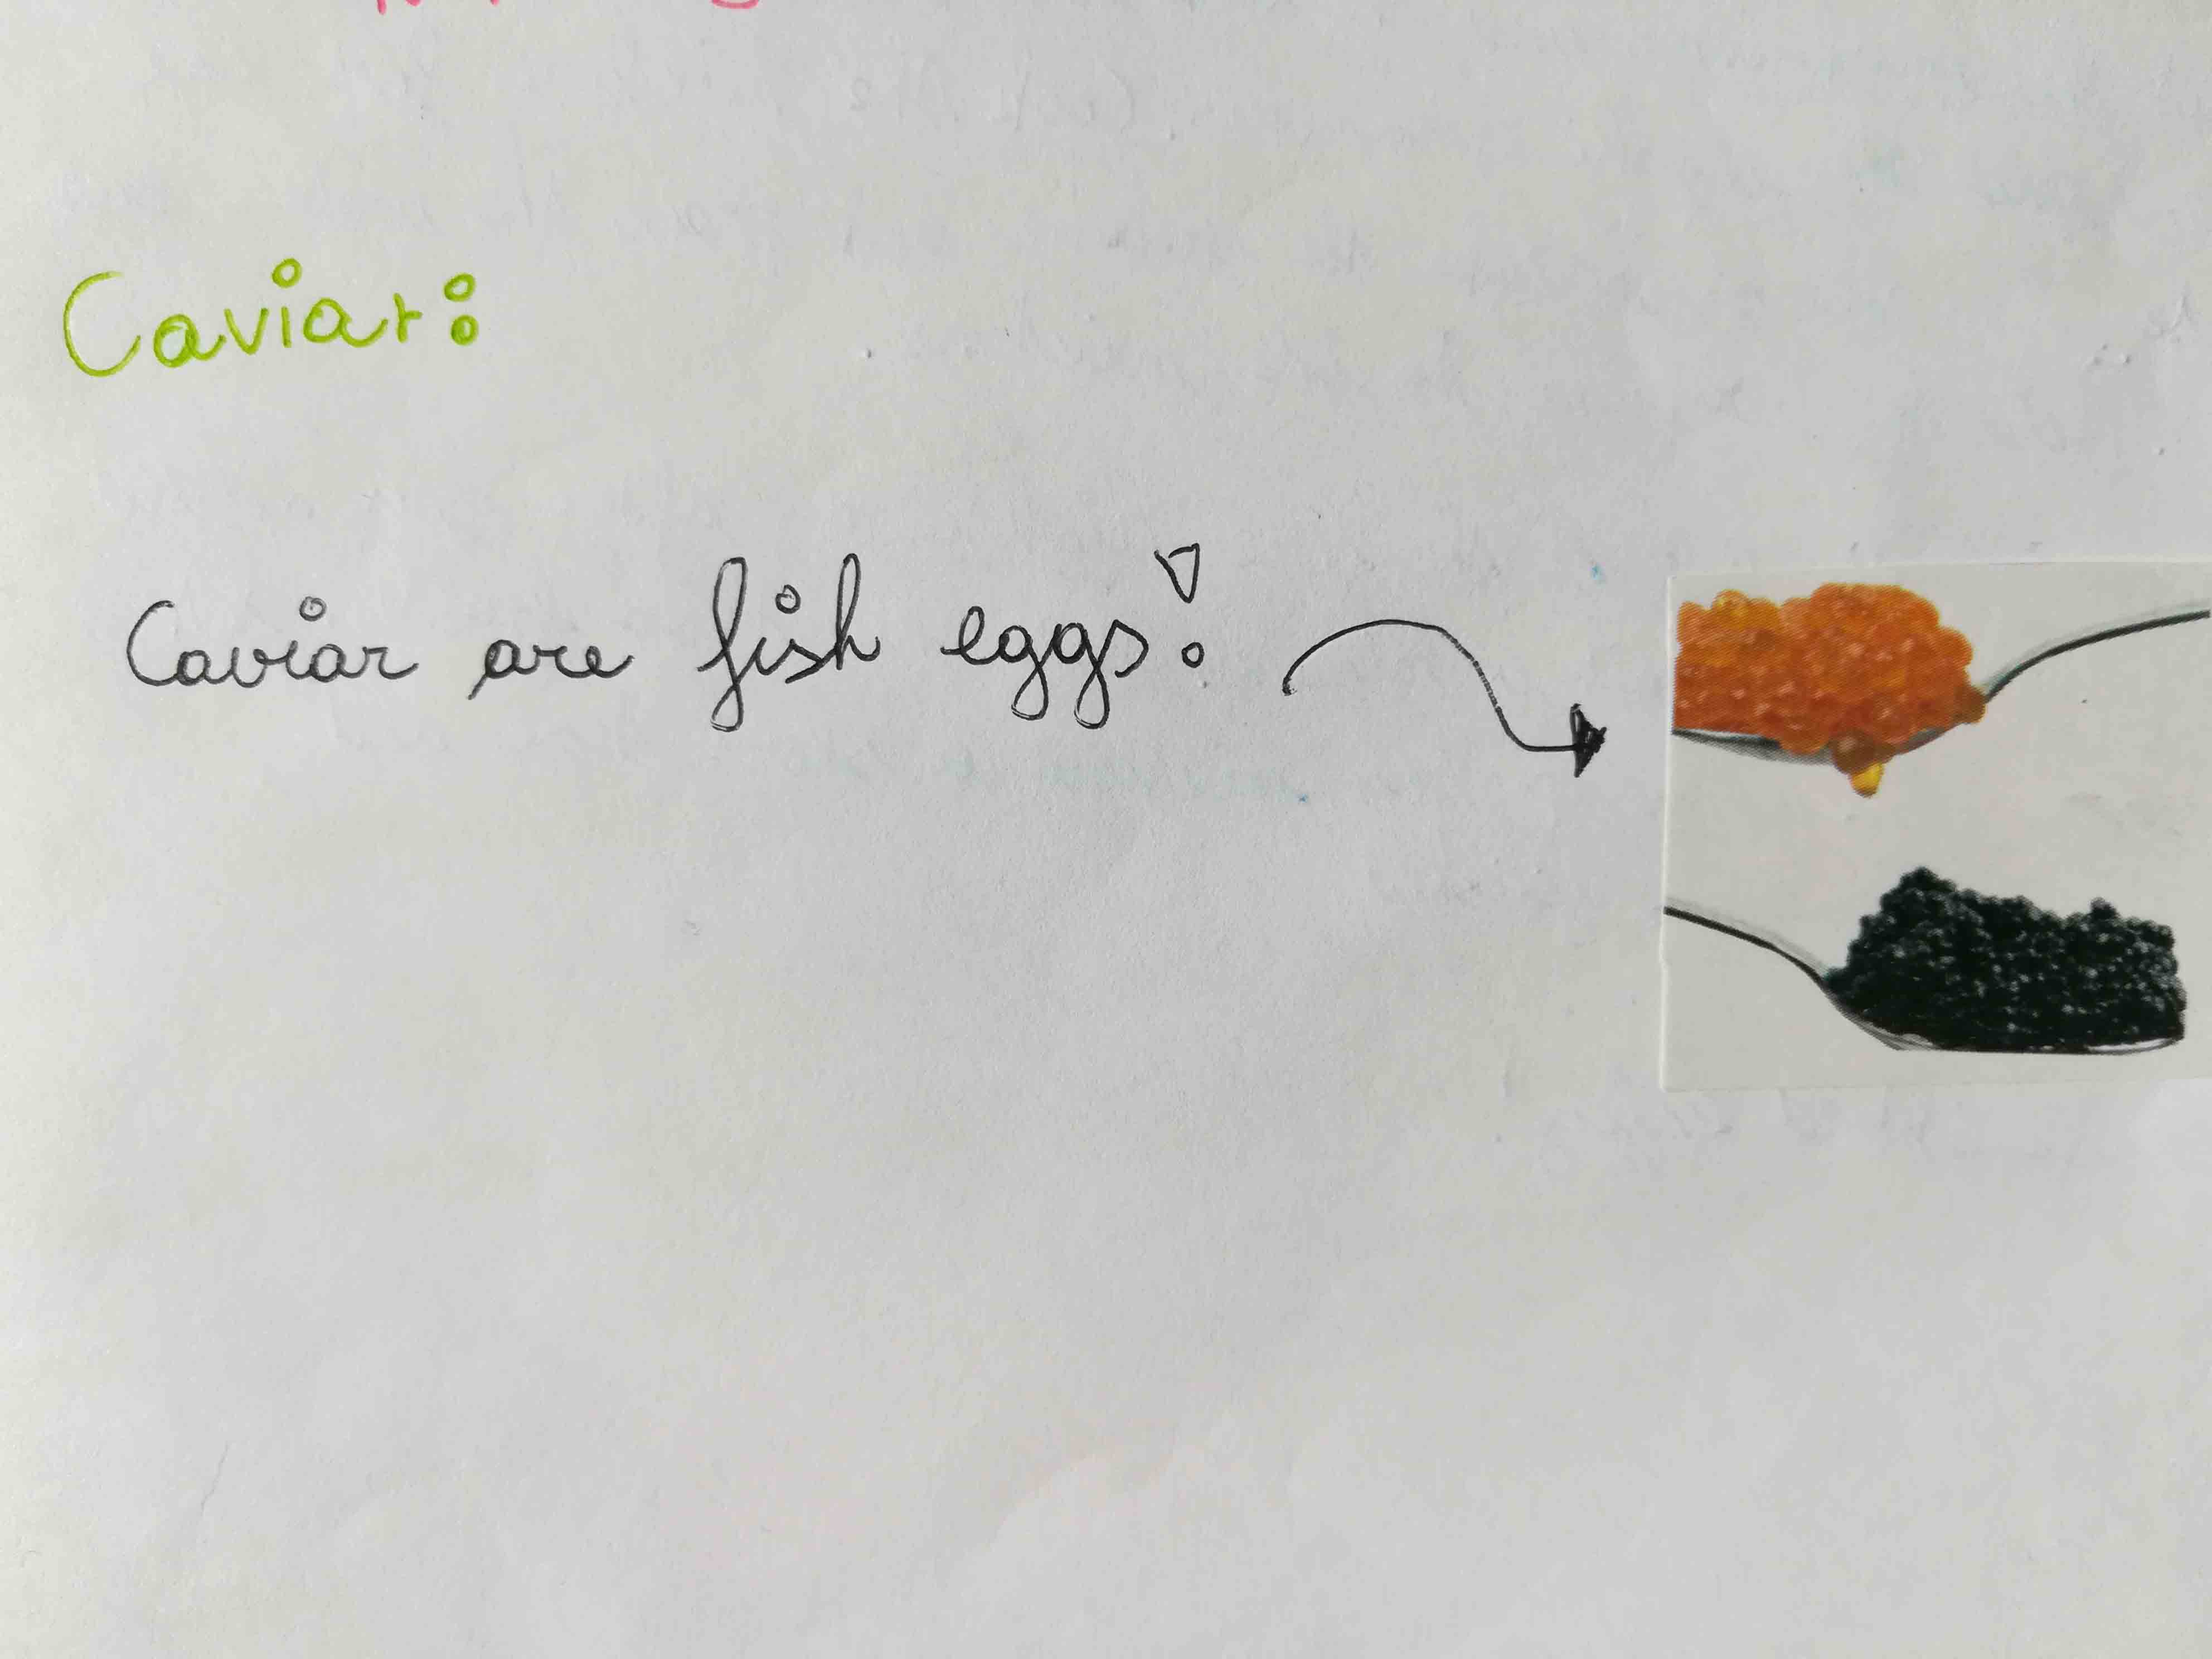 Caviar:
Caviar are fish eggs!